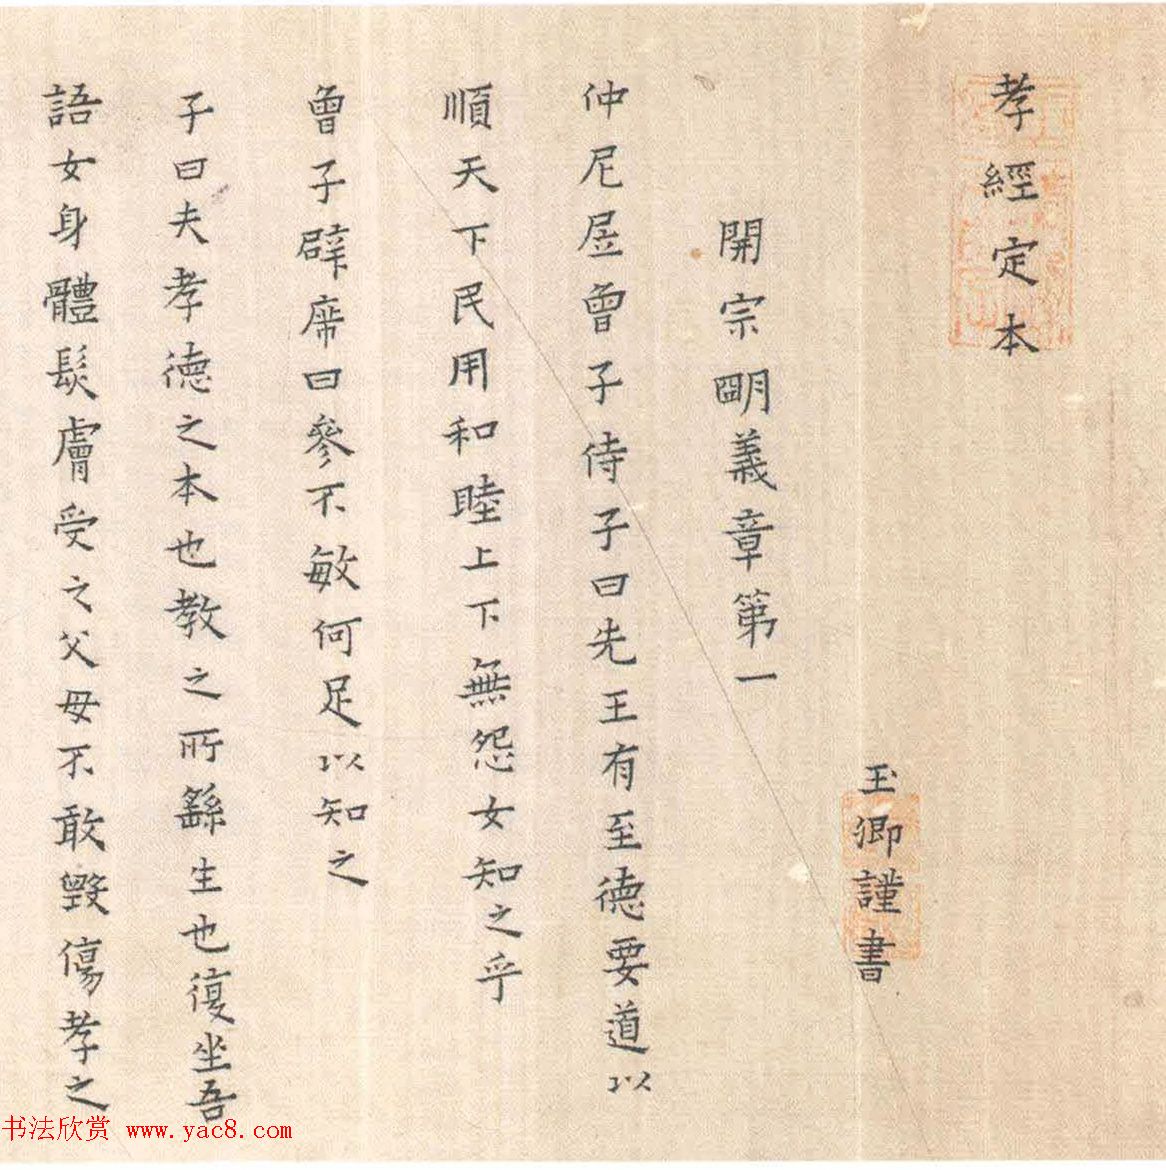 孝經定本
玉卿謹書
開宗明義章第一
仲尼凥曾子侍子曰先王有至德要道以
順天下民用和睦上下無怨女知之乎
曾子辟席曰參不敏何足以知之
子曰夫孝德之本也教之所繇生也復坐吾
語女身體髮膚受之父母不敢毀傷孝之
书法欣赏 www.yac8.com